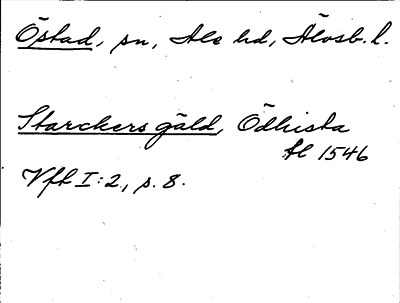 Östad, sn, Ale hd, Älvsb. l.
Starckers gäld, Ödhista
Äl 1546
Vfl I:2, s. 8.